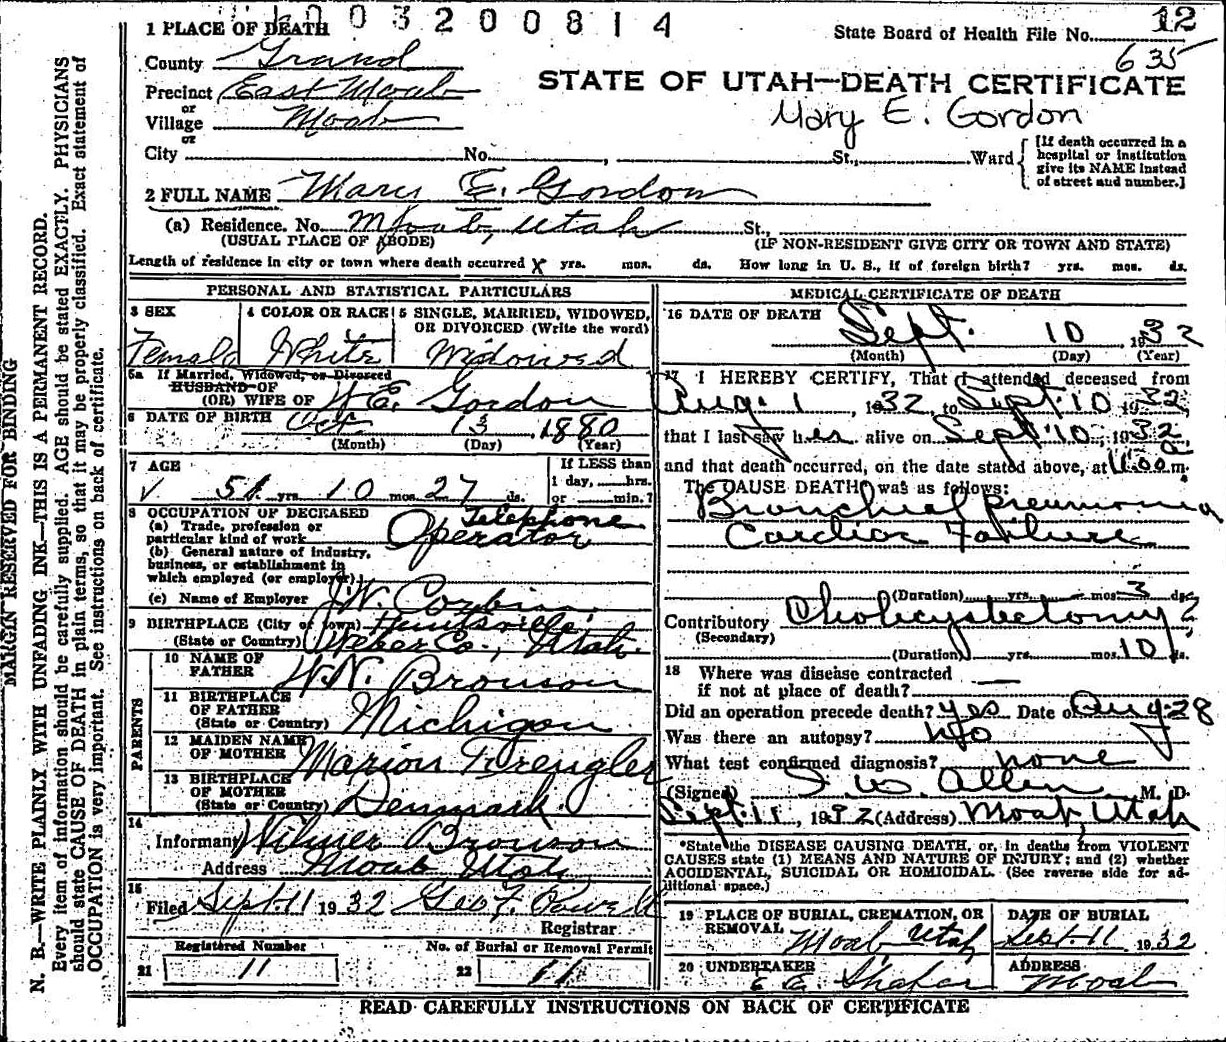 1003200814
1 PLACE OF DEATH
State Board of Health File No. 12
635
County Grand
STATE OF UTAH—DEATH CERTIFICATE
Precinct East Moab
Mary E. Gordon
or
Village Moab
or
City No. , St., Ward
[If death occurred in a
hospital or institution
give its NAME instead
of street and number.]
2 FULL NAME Mary E. Gordon
(a) Residence. No. Moab, Utah St.,
(USUAL PLACE OF ABODE) (IF NON-RESIDENT GIVE CITY OR TOWN AND STATE)
Length of residence in city or town where death occurred X yrs. mos. ds. How long in U. S., if of foreign birth? yrs. mos. ds.
PERSONAL AND STATISTICAL PARTICULARS
3 SEX 4 COLOR OR RACE 5 SINGLE, MARRIED, WIDOWED,
OR DIVORCED (Write the word)
Female White Widowed
5a If Married, Widowed, or Divorced
HUSBAND OF
(OR) WIFE OF W. E. Gordon
6 DATE OF BIRTH Oct 13 1880
(Month) (Day) (Year)
7 AGE If LESS than
1 day, hrs.
51 yrs. 10 mos. 27 ds. or min.?
8 OCCUPATION OF DECEASED
(a) Trade, profession or
particular kind of work Telephone
Operator
(b) General nature of industry,
business, or establishment in
which employed (or employer)
(c) Name of Employer J.W. Corbin
9 BIRTHPLACE (City or town) Huntsville
(State or Country) Weber Co., Utah.
PARENTS
10 NAME OF
FATHER W.N. Bronson
11 BIRTHPLACE
OF FATHER
(State or Country) Michigan
12 MAIDEN NAME
OF MOTHER Marion
13 BIRTHPLACE
OF MOTHER
(State or Country) Denmark
14
Informant Wilmer Bronson
Address Moab Utah
15
Filed Sept. 11 1932 Geo. F. Powell
Registrar
Registered Number No. of Burial or Removal Permit
21 11 22 11
MEDICAL CERTIFICATE OF DEATH
16 DATE OF DEATH
Sept. 10, 1932
(Month) (Day) (Year)
17 I HEREBY CERTIFY, That I attended deceased from
Aug. 1, 1932, to Sept. 10 1932,
that I last saw her alive on Sept 10, 1932,
and that death occurred, on the date stated above, at 11:00 a m.
The CAUSE DEATH* was as follows:
Bronchial pneumonia
Cardiac Failure
(Duration) yrs. mos. 3 ds.
Contributory Cholecystectomy
(Secondary)
(Duration) yrs. mos. 10 ds.
18 Where was disease contracted
if not at place of death? —
Did an operation precede death? yes Date of Aug. 28
Was there an autopsy? No
What test confirmed diagnosis? none
(Signed) I. W. Allen M. D.
Sept. 11, 1932 (Address) Moab, Utah
*State the DISEASE CAUSING DEATH, or, in deaths from VIOLENT
CAUSES state (1) MEANS AND NATURE OF INJURY; and (2) whether
ACCIDENTAL, SUICIDAL OR HOMICIDAL. (See reverse side for ad-
ditional space.)
19 PLACE OF BURIAL, CREMATION, OR
REMOVAL Moab Utah
DATE OF BURIAL
Sept. 11 1932
20 UNDERTAKER
Shafer
ADDRESS
Moab
READ CAREFULLY INSTRUCTIONS ON BACK OF CERTIFICATE
MARGIN RESERVED FOR BINDING
N. B.—WRITE PLAINLY WITH UNFADING INK—THIS IS A PERMANENT RECORD.
Every item of information should be carefully supplied. AGE should be stated EXACTLY. PHYSICIANS
should state CAUSE OF DEATH in plain terms, so that it may be properly classified. Exact statement of
OCCUPATION is very important. See instructions on back of certificate.